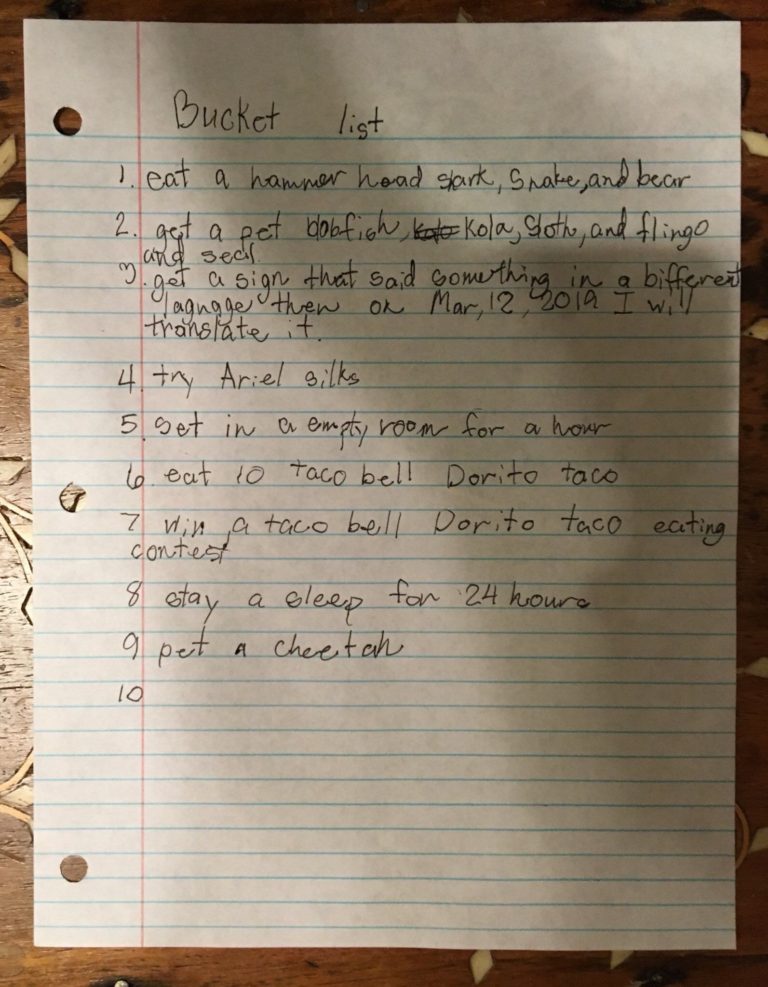 Bucket list
1. eat a hammer head shark, Snake, and bear
2. get a pet blobfish, Kola, Sloth, and flingo
and seal
3. get a sign that said something in a bifferent
lagnage then on Mar, 12, 2019 I will
translate it.
4. try Ariel silks
5. set in a empty room for a hour
6. eat 10 taco bell Dorito taco
7 win a taco bell Dorito taco eating
contest
8 stay a sleep for 24 hours
9 pet a cheetah
10